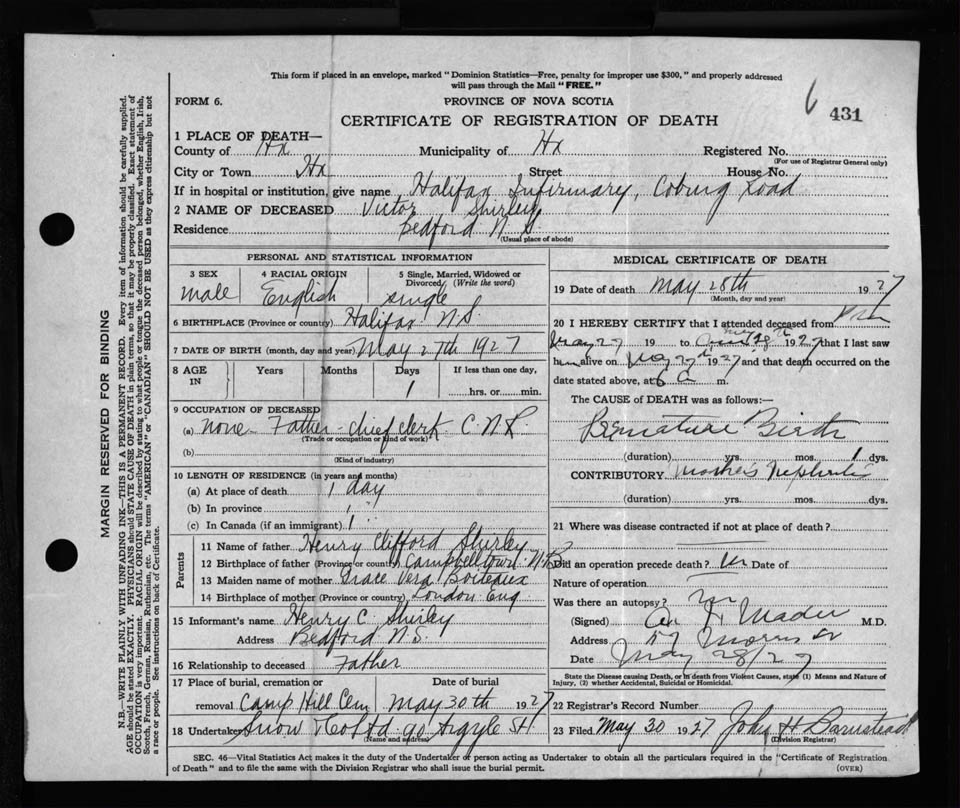 This form if placed in an envelope, marked "Dominion Statistics—Free, penalty for improper use $300," and properly addressed
will pass through the Mail "FREE."
FORM 6.
PROVINCE OF NOVA SCOTIA
6 431
CERTIFICATE OF REGISTRATION OF DEATH
1 PLACE OF DEATH—
County of Hx Municipality of Hx Registered No.
(For use of Registrar General only)
City or Town Hx Street House No.
If in hospital or institution, give name Halifax Infirmary, Coburg Road
2 NAME OF DECEASED Victor Shirley
Residence Bedford N.S.
(Usual place of abode)
PERSONAL AND STATISTICAL INFORMATION
3 SEX 4 RACIAL ORIGIN 5 Single, Married, Widowed or
Divorced (Write the word)
male English single
6 BIRTHPLACE (Province or country) Halifax N.S.
7 DATE OF BIRTH (month, day and year) May 27th 1927
8 AGE IN Years Months Days If less than one day,
1 hrs. or min.
9 OCCUPATION OF DECEASED
(a) none Father - chief clerk C.N.R.
(Trade or occupation or kind of work)
(b)
(Kind of industry)
10 LENGTH OF RESIDENCE (in years and months)
(a) At place of death 1 day
(b) In province 1 "
(c) In Canada (if an immigrant) 1 "
Parents
11 Name of father Henry Clifford Shirley
12 Birthplace of father (Province or country) Campbellton N.B.
13 Maiden name of mother Grace Vera
14 Birthplace of mother (Province or country) London Eng
15 Informant's name Henry C. Shirley
Address Bedford N.S.
16 Relationship to deceased Father
17 Place of burial, cremation or Date of burial
removal Camp Hill Cem May 30th 1927
18 Undertaker Snow & Co Ltd 90 Argyle St
(Name and address)
MEDICAL CERTIFICATE OF DEATH
19 Date of death May 28th 1927
(Month, day and year)
20 I HEREBY CERTIFY that I attended deceased from
May 27 19 to May 28th 1927 that I last saw
him alive on May 27th 1927 and that death occurred on the
date stated above, at 6 a m.
The CAUSE of DEATH was as follows:—
Premature Birth
(duration) yrs. mos. 1 dys.
CONTRIBUTORY Mother's Nephritis
(duration) yrs. mos. dys.
21 Where was disease contracted if not at place of death?
Did an operation precede death? Date of
Nature of operation
Was there an autopsy? no
(Signed) Mader M.D.
Address 57 Morris St
Date May 28/27
State the Disease causing Death, or in death from Violent Causes, state (1) Means and Nature of
Injury, (2) whether Accidental, Suicidal or Homicidal.
22 Registrar's Record Number
23 Filed May 30 1927 John H Barnstead
(Division Registrar)
SEC. 46—Vital Statistics Act makes it the duty of the Undertaker or person acting as Undertaker to obtain all the particulars required in the "Certificate of Registration
of Death" and to file the same with the Division Registrar who shall issue the burial permit.
(OVER)
MARGIN RESERVED FOR BINDING
N.B.—WRITE PLAINLY WITH UNFADING INK—THIS IS A PERMANENT RECORD. Every item of information should be carefully supplied.
AGE should be stated EXACTLY. PHYSICIANS should STATE CAUSE OF DEATH in plain terms, so that it may be properly classified. Exact statement of
OCCUPATION is very important. RACIAL ORIGIN will be described by stating to what people or tongue the deceased person belonged, whether English, Irish,
Scotch, French, German, Russian, Ruthenian, etc. The terms "AMERICAN" or "CANADIAN" SHOULD NOT BE USED as they express citizenship but not
a race or people. See instructions on back of Certificate.